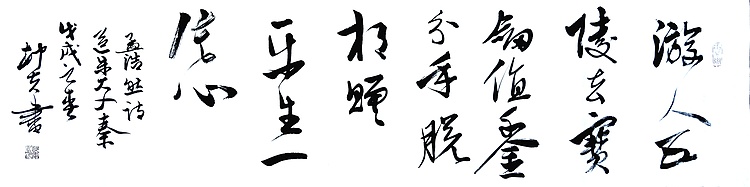 游人五
陵去寶
劍值千金
分手脱
相贈
平生一
片心
孟浩然詩
送朱大入秦
戊戌之
書